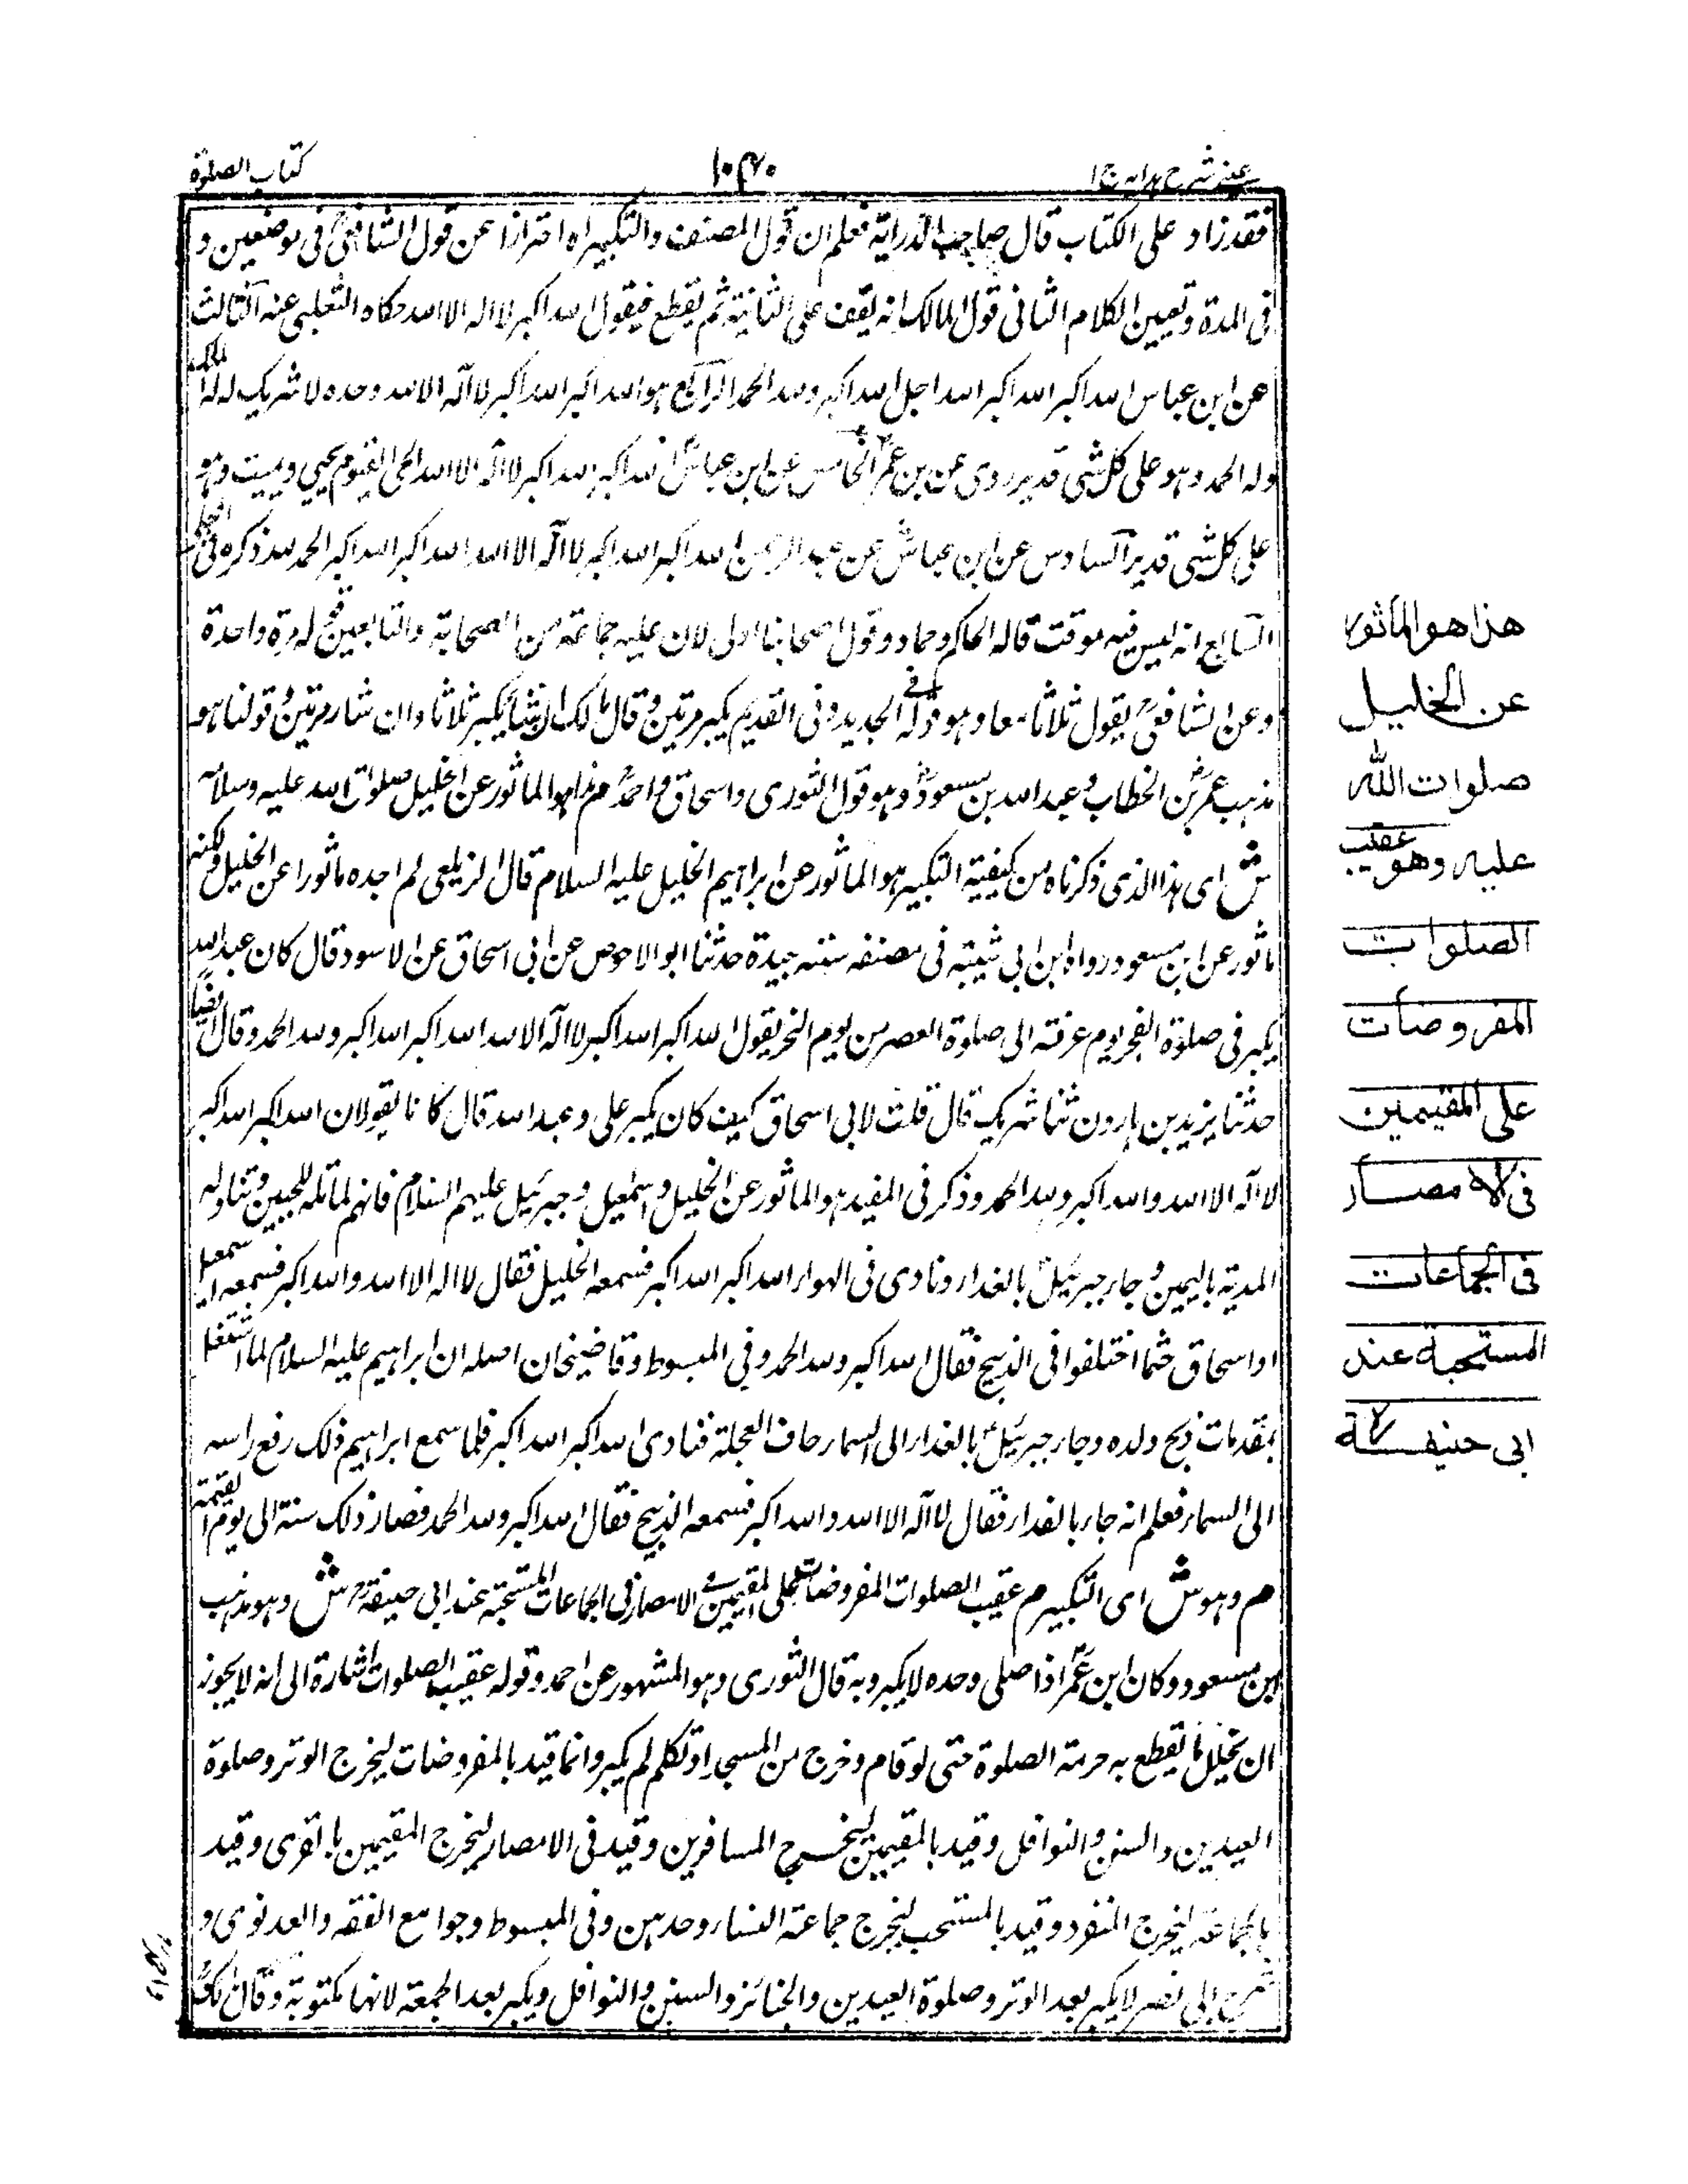 عینی شرح ہدایہ ج ۱
۱۰۴۰
كتاب الصلوة
فقد زاد على الكتاب قال صاحب الدراية فعلم ان قول المصنف والتكبير اه احترازا عن قول الشافعي في موضعين و
في المدة وتعيين الكلام الثاني قول المالك انه يقف على الثانية ثم يقطع فيقول الله اكبر لا اله الا الله حكاه الثعلبي عنه الثالث
عن ابن عباس الله اكبر الله اكبر الله اجل الله اكبر ولله الحمد الرابع هو الله اكبر الله اكبر لا اله الا الله وحده لا شريك له له الملك
وله الحمد وهو على كل شي قدير روى عن بن عمر الخامس عن ابن عباس الله اكبر الله اكبر لا اله الا الله الحي القيوم يحيي ويميت وهو
على كل شي قدير السادس عن ابن عباس عن عبد الرحمن الله اكبر الله اكبر لا اله الا الله الله اكبر الله اكبر الحمد لله ذكره في المحلى
السابع انه ليس فيه موقت قاله الحاكم وحماد وقول اصحابنا اولى لان عليه جماعة من الصحابة والتابعين له مرة واحدة
وعن الشافعي يقول ثلاثا نسعا وهو قوله في الجديد وفي القديم يكبر مرتين وقال مالك ان شا يكبر ثلاثا وان شار مرتين وقولنا هو
مذهب عمر بن الخطاب وعبد الله بن مسعود وهو قول الثوري واسحاق واحمد م هذا هو الماثور عن الخليل صلوات الله عليه وسلامه
ش اى هذا الذي ذكرناه من كيفية التكبير هو الماثور عن ابراهيم الخليل عليه السلام قال الزيلعي لم اجده ماثورا عن الخليل ولكنه
ماثور عن ابن مسعود رواه ابن ابي شيبة في مصنفه بسند جيدة حدثنا ابو الاحوص عن ابي اسحاق عن الاسود قال كان عبد الله
يكبر في صلوة الفجر يوم عرفة الى صلوة العصر من يوم النحر يقول الله اكبر الله اكبر لا اله الا الله الله اكبر الله اكبر ولله الحمد وقال ايضا
حدثنا يزيد بن هارون ثنا شريك قال قلت لابي اسحاق كيف كان يكبر علي وعبد الله قال كانا يقولان الله اكبر الله اكبر
لا اله الا الله والله اكبر ولله الحمد وذكر في المفيد هو الماثور عن الخليل واسمعيل وجبرئيل عليهم السلام فانهم لما تله للجبين وتناوله
المدية باليمين وجار جبرئيل بالفدار ونادى في الهوار الله اكبر الله اكبر فسمعه الخليل فقال لا اله الا الله والله اكبر فسمعه اسمعيل
او اسحاق حثما اختلفوا في الذبيح فقال الله اكبر ولله الحمد وفي المبسوط وقاضيخان اصله ان ابراهيم عليه السلام لما اشتغل
بمقدمات ذبح ولده وجار جبرئيل بالفدار الى السمار خاف العجلة فنادى الله اكبر الله اكبر فلما سمع ابراهيم ذلك رفع راسه
الى السمار فعلم انه جار بالفدار فقال لا اله الا الله والله اكبر فسمعه الذبيح فقال الله اكبر ولله الحمد فصار ذلك سنة الى يوم القيمة
م وهو ش اى التكبير م عقيب الصلوات المفروضات على المقيمين في الامصار في الجماعات المستحبة عند ابي حنيفة ش وهو مذهب
ابن مسعود وكان ابن عمر اذا صلى وحده لا يكبر وبه قال الثوري وهو المشهور عن احمد وقوله عقيب الصلوات اشارة الى انه لا يجوز
ان يتخلل ما تقطع به حرمة الصلوة حتى لو قام وخرج من المسجد او تكلم لم يكبر وانما قيد بالمفروضات ليخرج الوتر وصلوة
العيدين والسنن والنوافل وقيد بالمقيمين ليخرج المسافرين وقيد في الامصار ليخرج المقيمين بالقرى وقيد
بالجماعة ليخرج المنفرد وقيد بالمستحب ليخرج جماعة النسار وحدهن وفي المبسوط وجوامع الفقه والعدنوي و
شرح ابي نصر لا يكبر بعد الوتر وصلوة العيدين والجنائز والسنن والنوافل ويكبر بعد الجمعة لانها مكتوبة وقال مالك
هذا هو المأثور
عن الخليل
صلوات الله
عليه وهو عقيب
الصلوات
المفروضات
على المقيمين
فى الامصار
فى الجماعات
المستحبة عند
ابى حنيفة